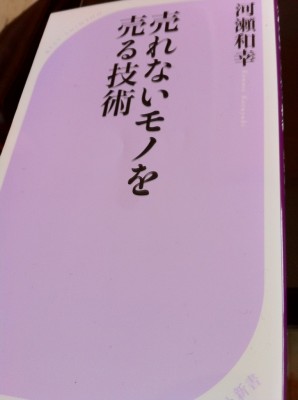 売れないモノを
売る技術
河瀬和幸
新書